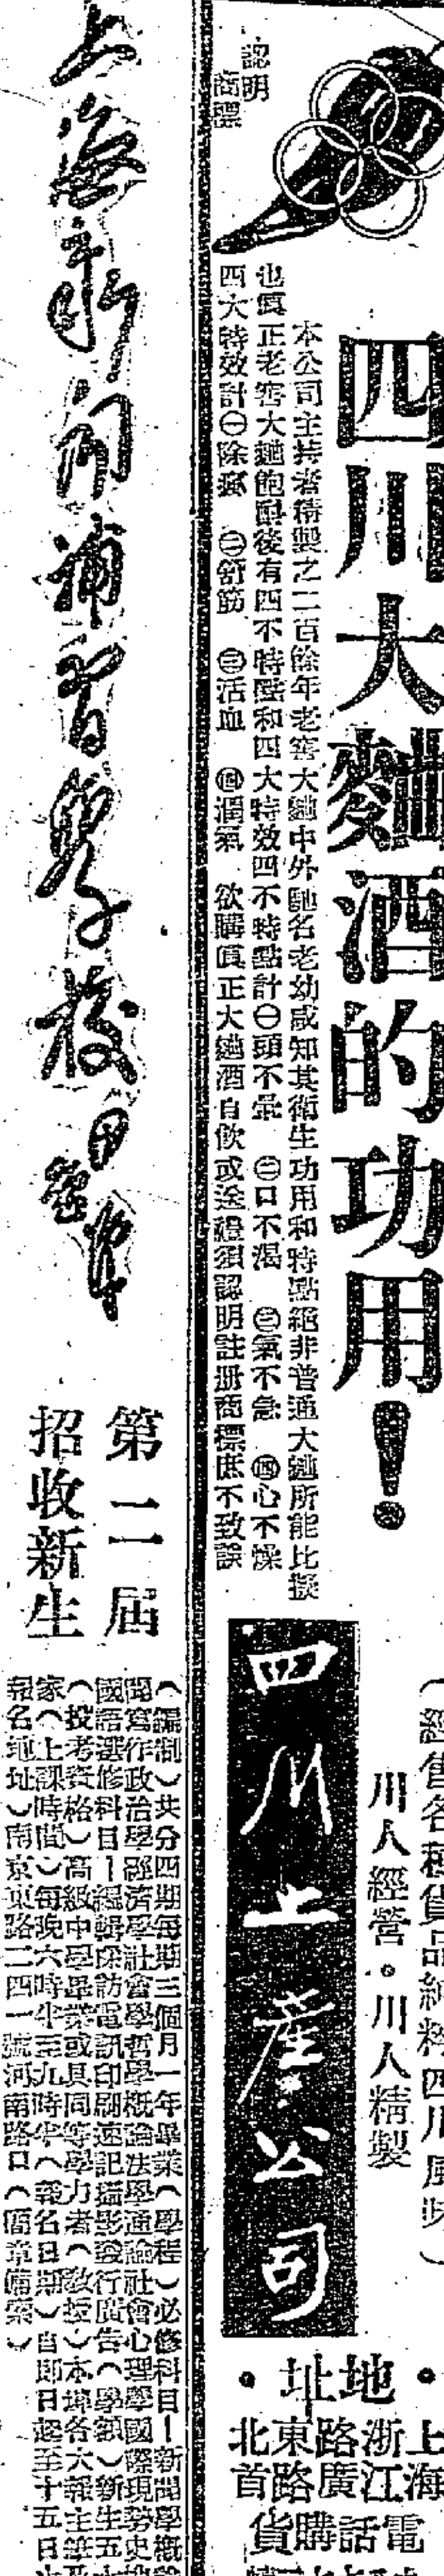 認明
商標
四川大麯酒的功用！
本公司主持者精製之二百餘年老窖大麯中外馳名老幼咸知其衛生功用和特點絕非普通大麯所能比擬
也眞正老窖大麯飽醉後有四不特點和四大特效四不特點計㊀頭不暈 ㊁口不渴 ㊂氣不急 ㊃心不燥
四大特效計㊀除 ㊁舒筋 ㊂活血 ㊃潤氣 欲購眞正大麯酒自飲或送禮須認明註册商標庶不致誤
（經售各種貨品純粹四川風味）
川人經營。川人精製
四川土產公司
・地址・
上海
浙江路
廣東路
北首
電話購貨
上海新聞補習學校
第二届
招收新生
（編制）共分四期每期三個月一年畢業（學程）必修科目－新聞學概
聞寫作政治學經濟學社會學哲學概論法學通論社會心理學國際現勢史地
國語選修科目－編輯採訪電訊印刷速記攝影發行廣告（學額）新生五十
（投考資格）高級中學畢業或具同等學力者（教授）本埠各大報主筆及
家（上課時間）每晚六時半至九時半（報名日期）自即日起至十五日止
報名地址）南京東路二四一號河南路口（簡章備索）